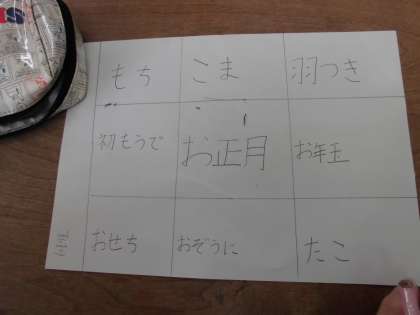 もち こま 羽つき
初もうで お正月 お年玉
おせち おぞうに たこ